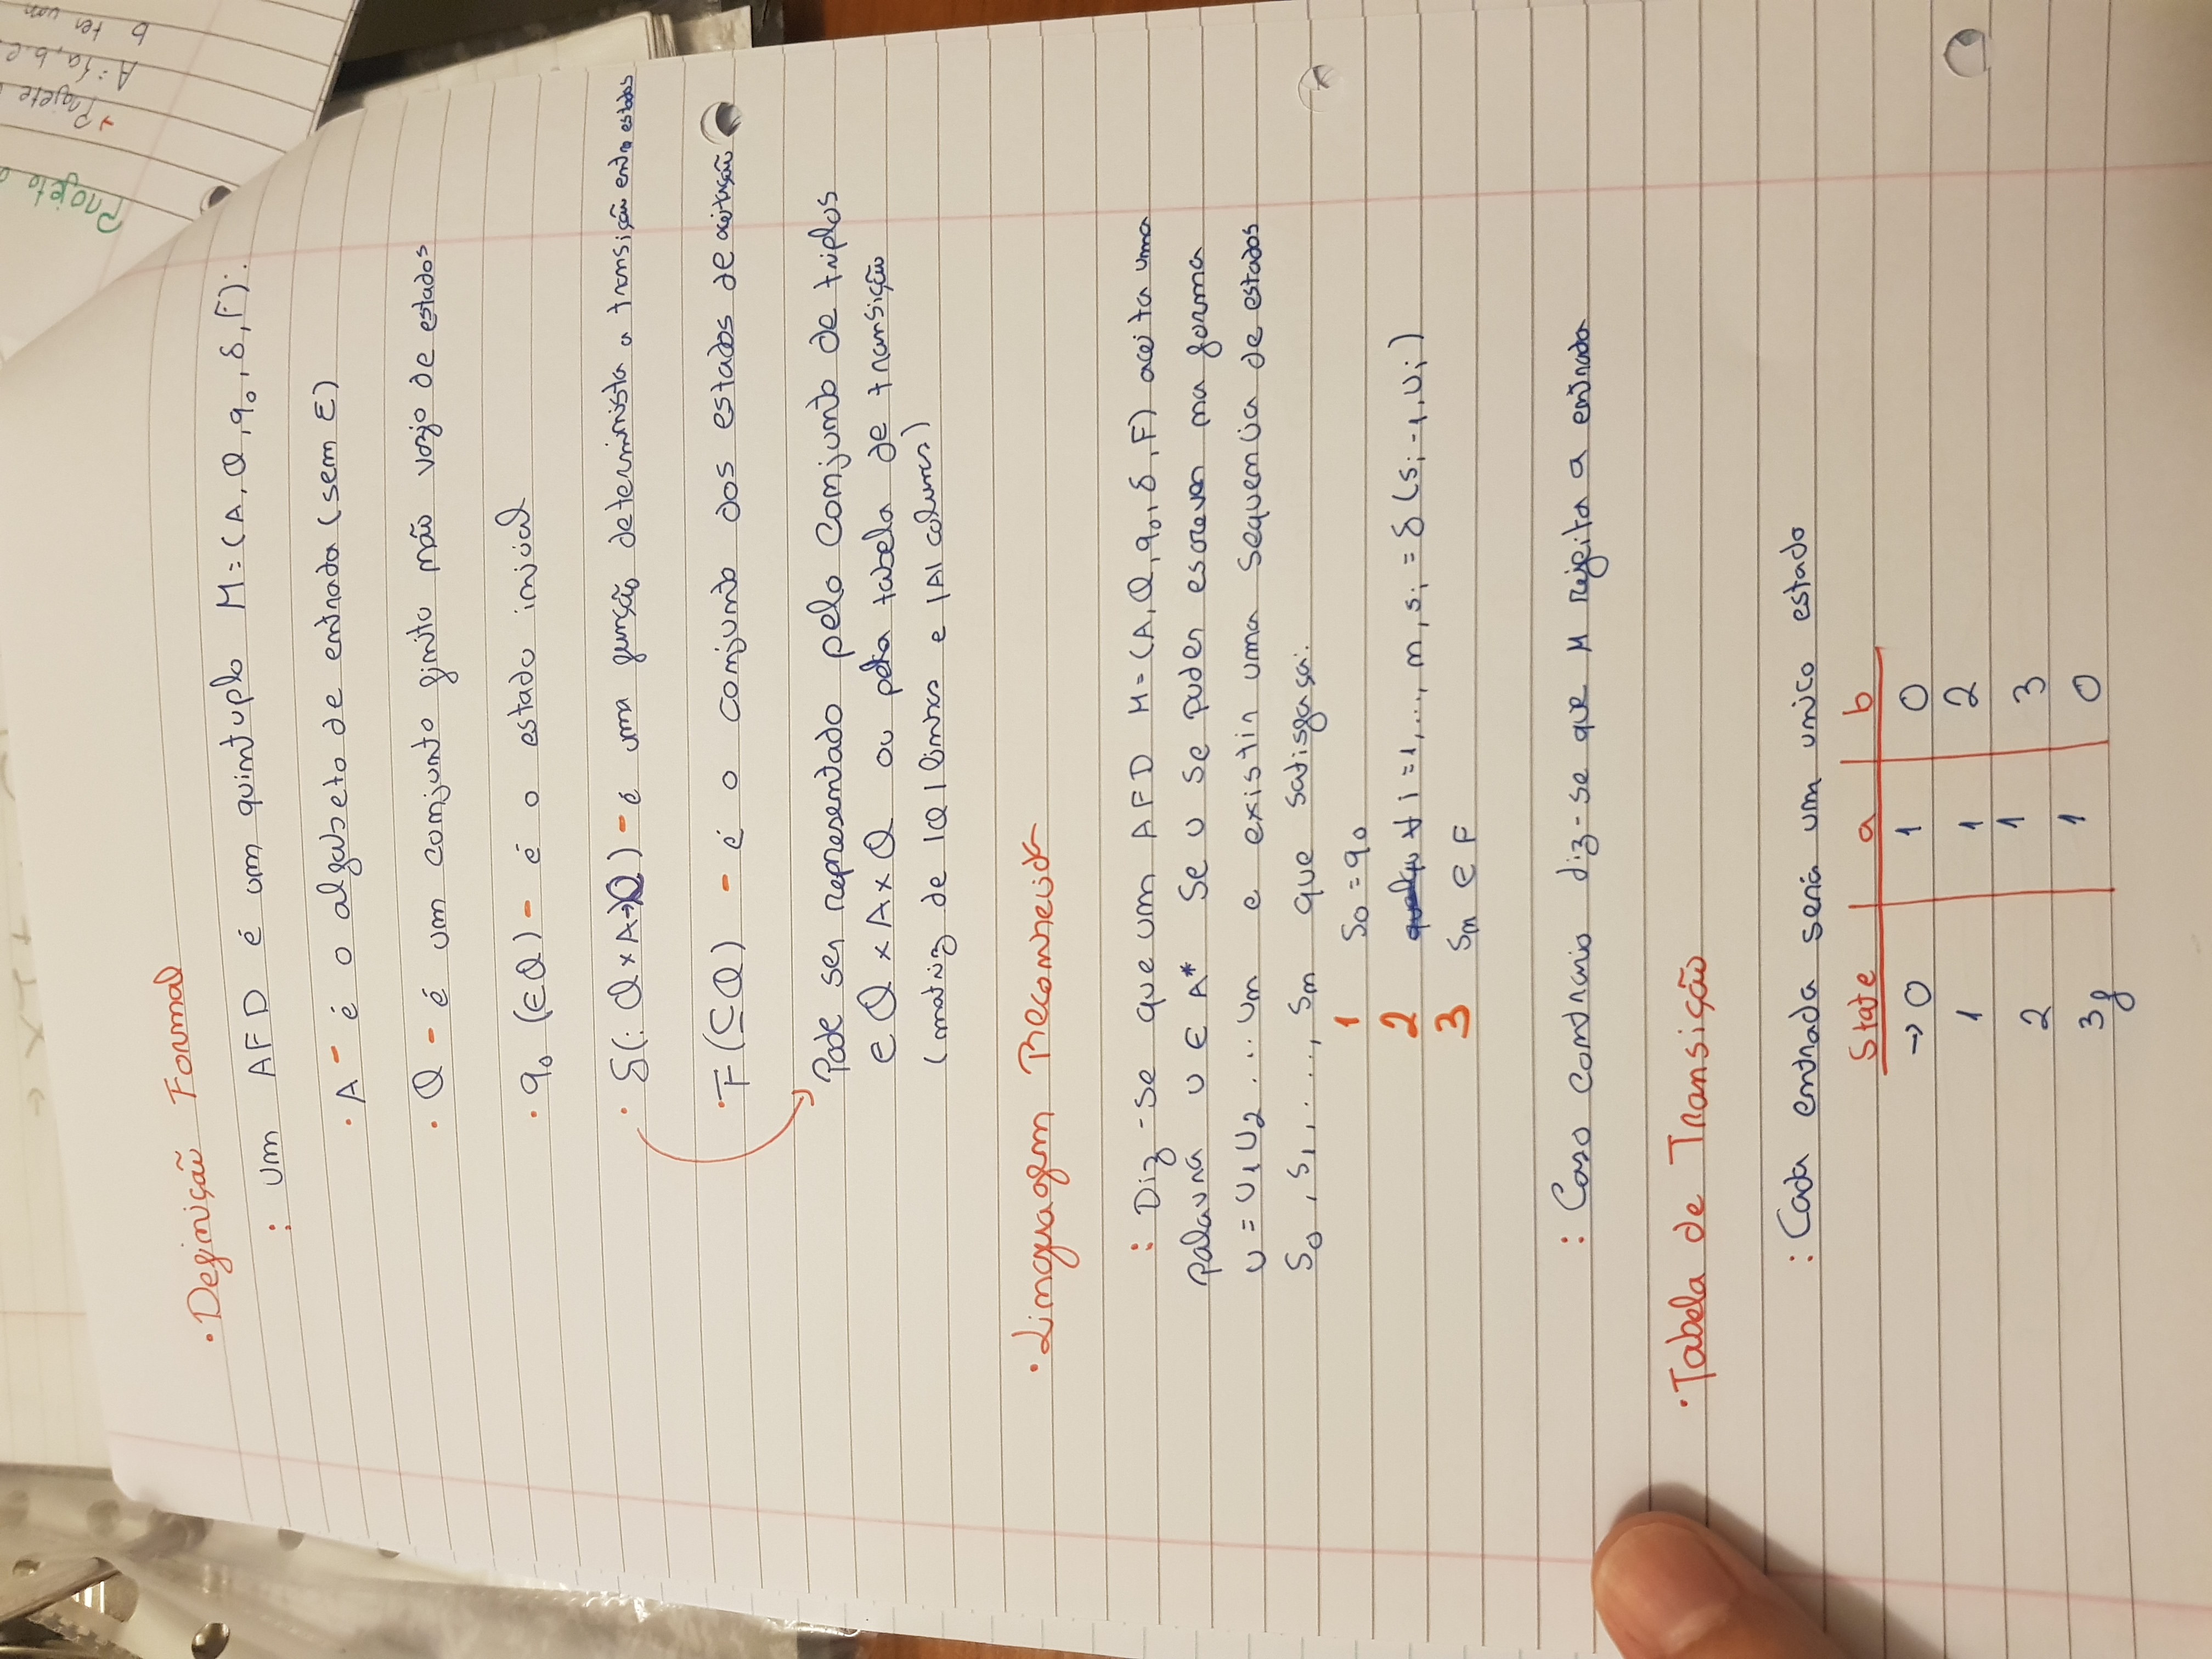 • Definição Formal
: um AFD é um quintuplo M=(A, Q, q₀, δ, F):
• A - é o alfabeto de entrada (sem ε)
• Q - é um conjunto finito não vazio de estados
• q₀ (∈Q) - é o estado inicial
• δ(: Q×A→Q) - é uma função determinista a transição entre estados
• F(⊆Q) - é o conjunto dos estados de aceitação
Pode ser representado pelo conjunto de triplos
∈ Q×A×Q ou pela tabela de transição
(matriz de |Q| linhas e |A| colunas)
• Linguagem Reconhecida
: Diz-se que um AFD M=(A, Q, q₀, δ, F) aceita uma
palavra u ∈ A* se u se puder escrever na forma
u = u₁u₂...uₙ e existir uma sequencia de estados
s₀, s₁, ..., sₙ que satisfaça:
1 s₀ = q₀
2 ∀ i = 1, ..., n, sᵢ = δ(sᵢ₋₁, uᵢ)
3 sₙ ∈ F
: Caso contrario diz-se que M rejeita a entrada
• Tabela de Transição
: Cada entrada será um unico estado
State a b
→ 0 1 0
1 1 2
2 1 3
3f 1 0
Projete
→ Projete
A = {a, b, c
b ter um